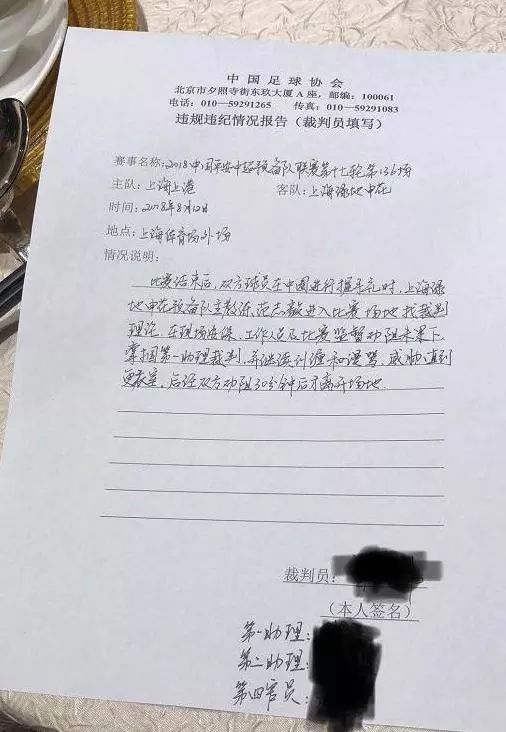 中国足球协会
北京市夕照寺街东玖大厦A座，邮编：100061
电话：010—59291265 传真：010—59291083
违规违纪情况报告（裁判员填写）
赛事名称：2018中国平安中超预备队联赛第十七轮第136场
主队：上海上港 客队：上海绿地申花
时间：2018年8月12日
地点：上海体育场外场
情况说明：
比赛结束后，双方球员在中圈进行握手礼时，上海绿
地申花预备队主教练，范志毅进入比赛场地找裁判
理论，在现场 工作人员及比赛监督劝阻未果下
掌掴第一助理裁判，并继续纠缠和谩骂，威胁直到
更衣室，后经双方劝阻30分钟后才离开场地
裁判员：
（本人签名）
第一助理：
第二助理：
第四官员：